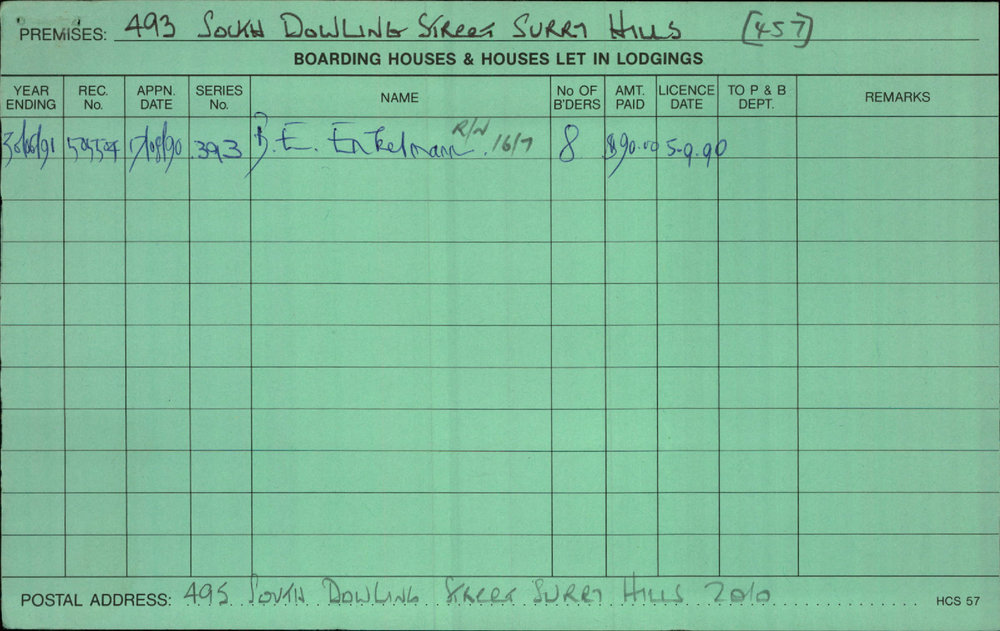 PREMISES: 493 SOUTH DOWLING STREET SURRY HILLS [457]
BOARDING HOUSES & HOUSES LET IN LODGINGS
YEAR ENDING REC. No. APPN. DATE SERIES No. NAME No OF B'DERS AMT. PAID LICENCE DATE TO P & B DEPT. REMARKS
30/06/91 /08/90 393 B. E. Enkelmann R/N 16/7 8 $90.00 5.9.90
POSTAL ADDRESS: 495 SOUTH DOWLING STREET SURRY HILLS 2010 HCS 57